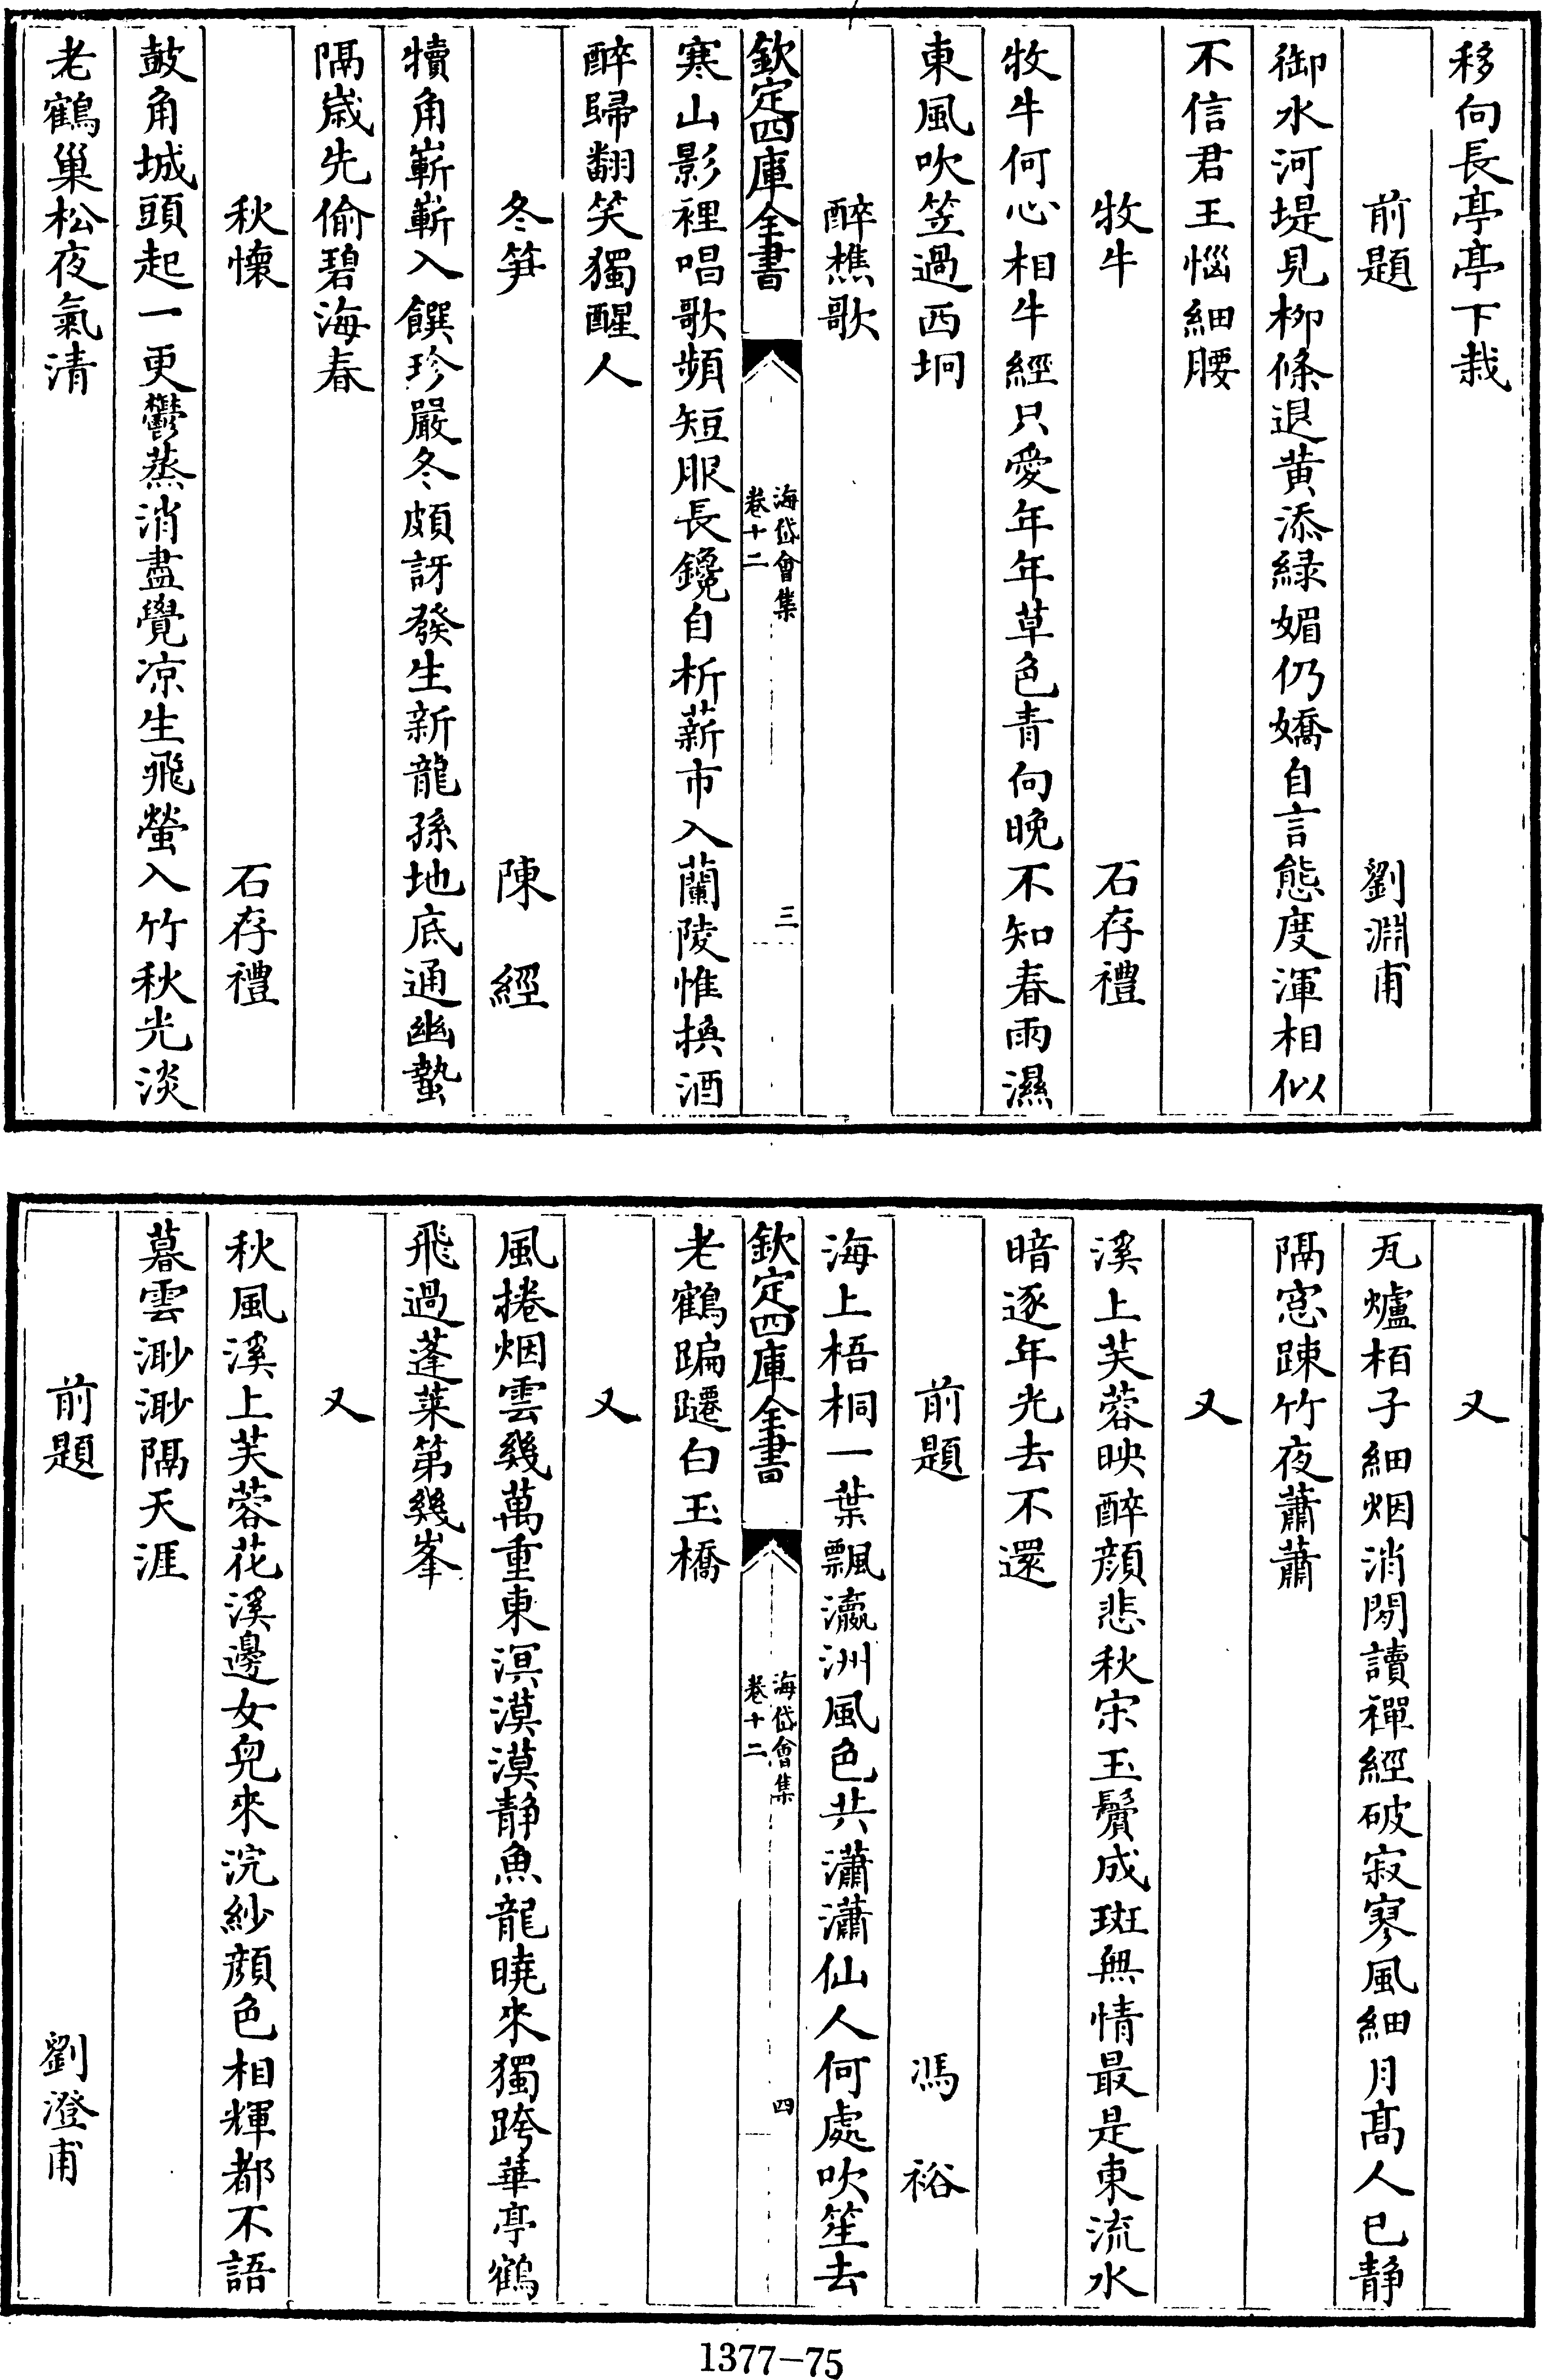 移向長亭亭下栽
前題 劉淵甫
御水河堤見柳條退黃添緑媚仍嬌自言態度渾相似
不信君王惱細腰
牧牛 石存禮
牧牛何心相牛經只愛年年草色青向晚不知春雨濕
東風吹笠過西坰
醉樵歌
欽定四庫全書
海岱會集
卷十二
三
寒山影裡唱歌頻短服長鑱自析薪市入蘭陵惟換酒
醉歸翻笑獨醒人
冬笋 陳經
犢角嶄嶄入饌珍嚴冬頗訝發生新龍孫地底通幽蟄
隔嵗先偷碧海春
秋懷 石存禮
鼓角城頭起一更鬱蒸消盡覺凉生飛螢入竹秋光淡
老鶴巢松夜氣清
又
瓦爐栢子細烟消閒讀禪經破寂寥風細月髙人已静
隔窓踈竹夜蕭蕭
又
溪上芙蓉映醉顔悲秋宋玉鬢成斑無情最是東流水
暗逐年光去不還
前題 馮裕
海上梧桐一葉飄瀛洲風色共瀟瀟仙人何處吹笙去
欽定四庫全書
海岱會集
卷十二
四
老鶴蹁躚白玉橋
又
風捲烟雲幾萬重東溟漠漠静魚龍曉來獨跨華亭鶴
飛過蓬萊第幾峯
又
秋風溪上芙蓉花溪邊女兒來浣紗顔色相輝都不語
暮雲渺渺隔天涯
前題 劉澄甫
1377-75